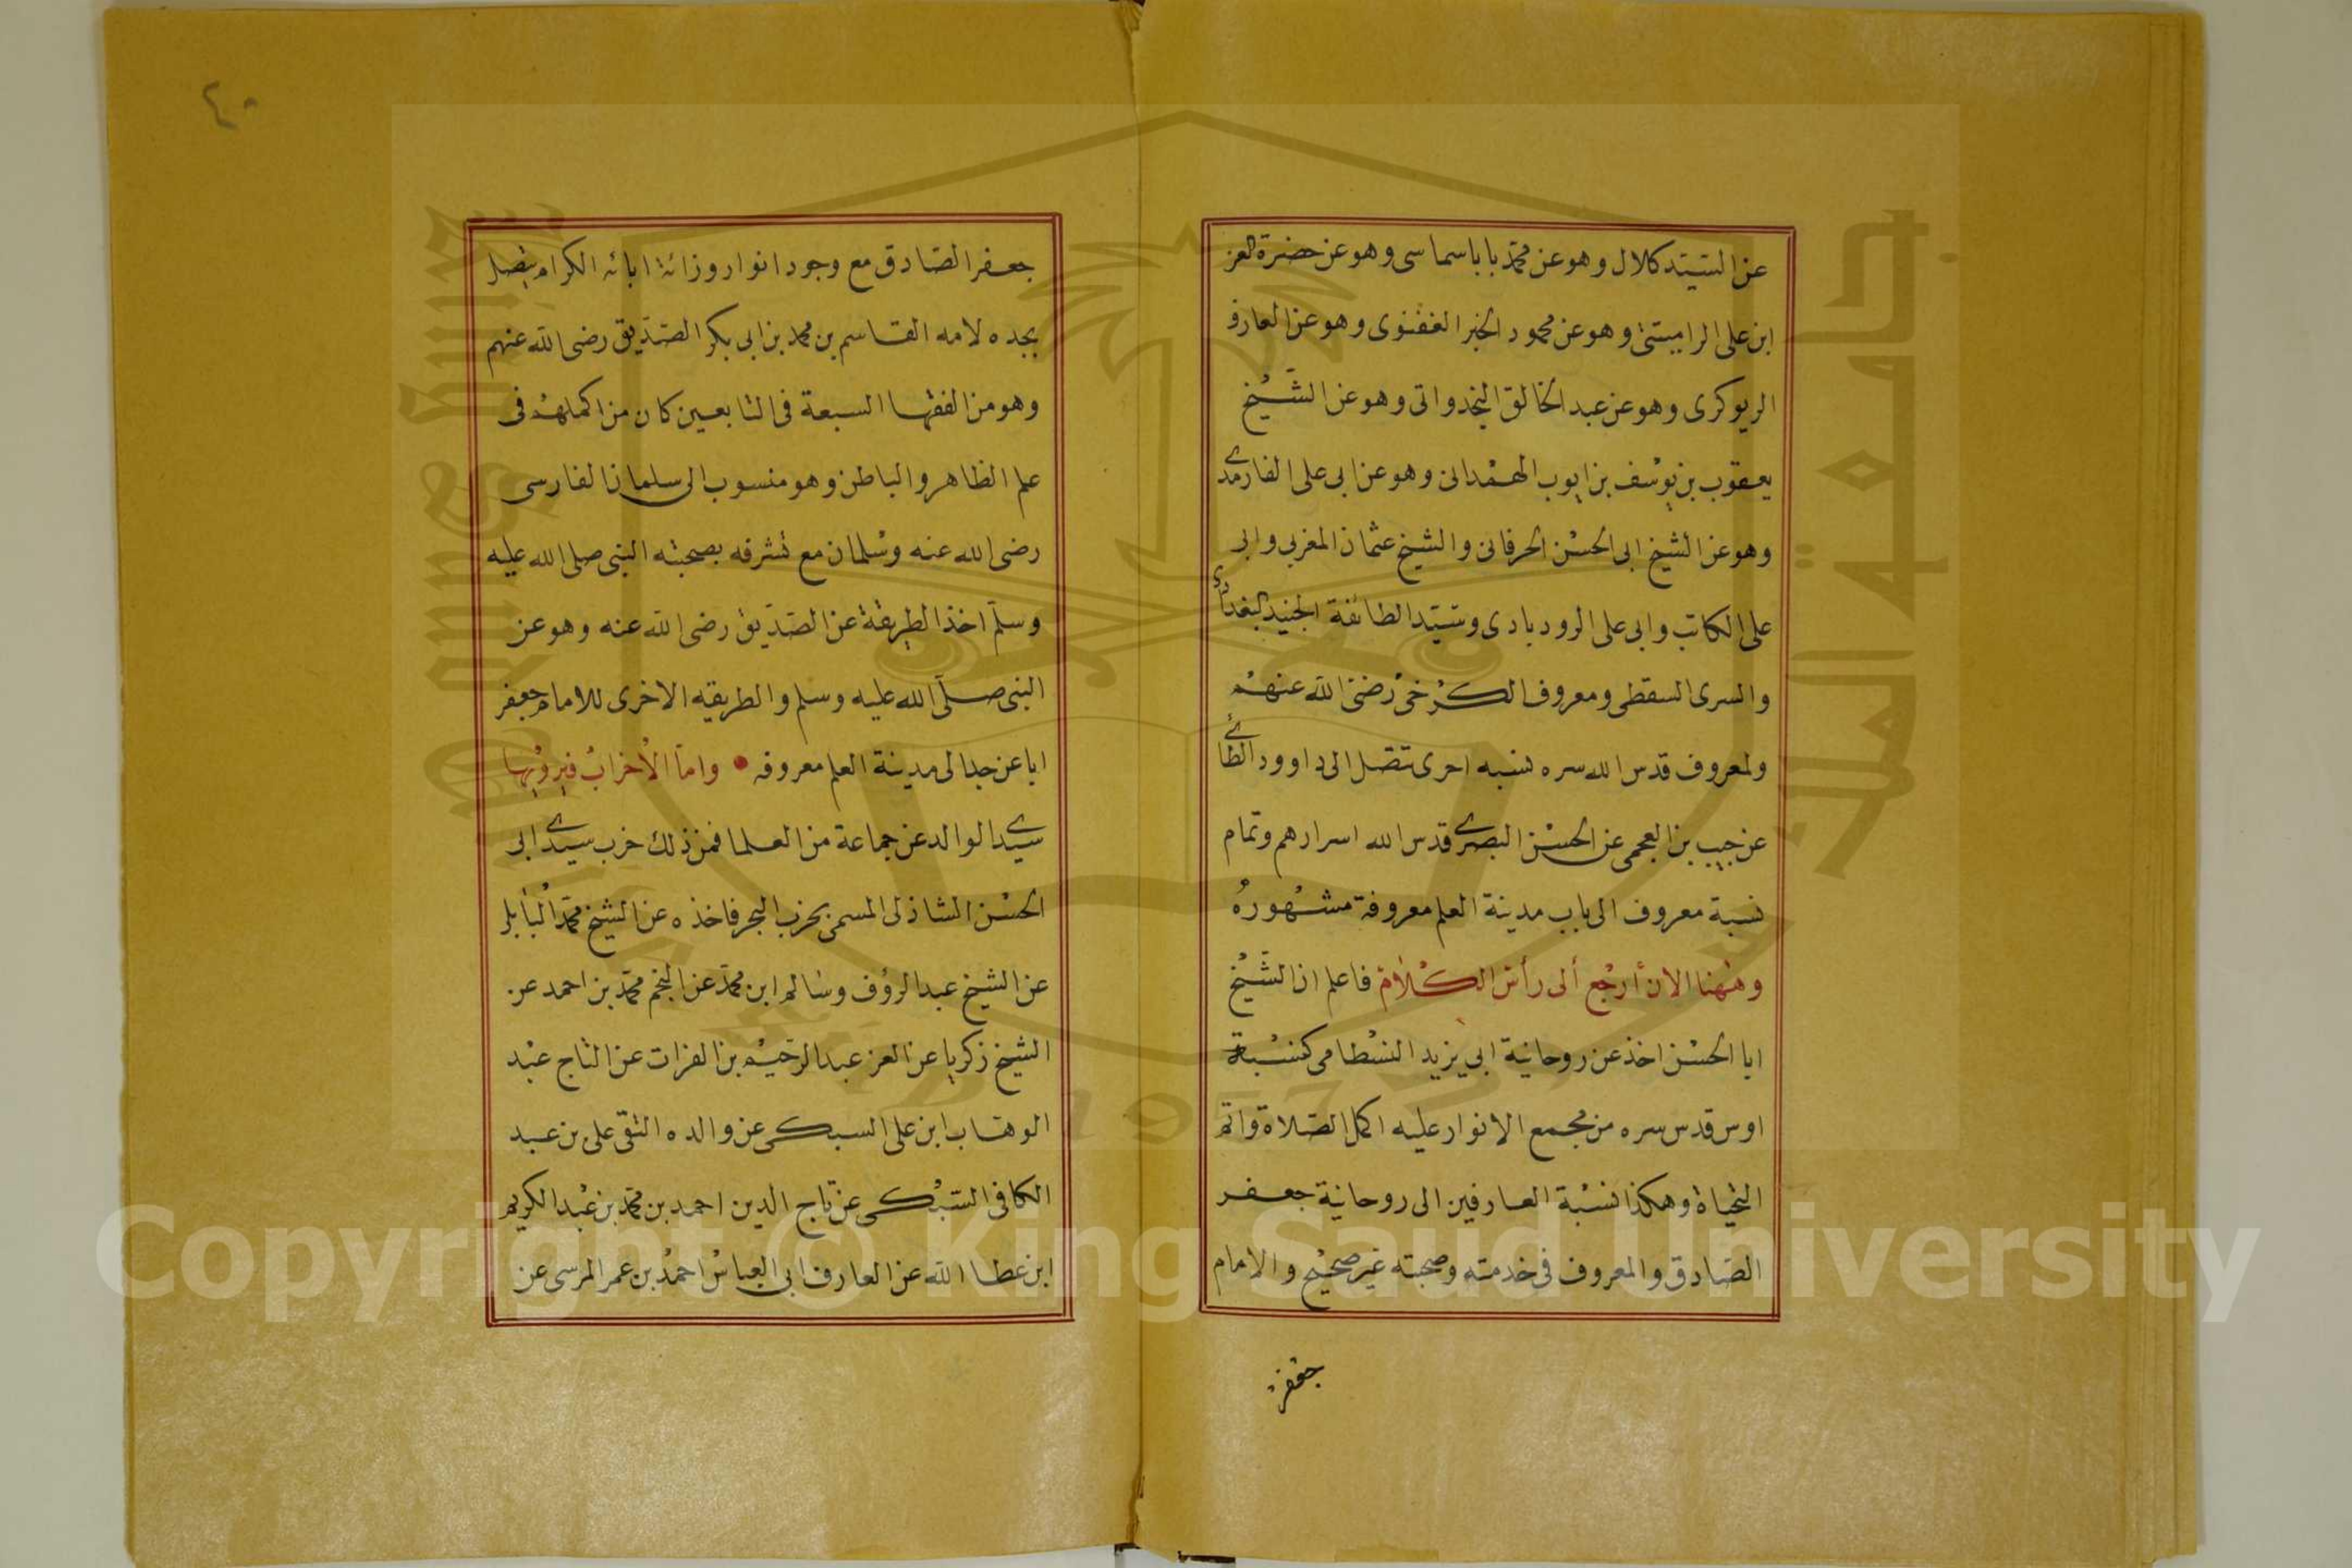 عن السيد كلال وهو عن محمد بابا سماسى وهو عن حضرة العز
ابن على الراميتنى وهو عن محمود الخير الففنوى وهو عن العارف
الريوكرى وهو عن عبد الخالق النجدواتى وهو عن الشيخ
يعقوب بن يوسف بن ايوب الهمدانى وهو عن ابى على الفارمدى
وهو عن الشيخ ابى الحسن الحرقانى والشيخ عثمان المغربى وابى
على الكاتب وابى على الرودبادى وسيد الطائفة الجنيد البغدادى
والسرى السقطى ومعروف الكرخى رضى الله عنهم
ولمعروف قدس الله سره نسبه احرى تتصل الى داوود الطائى
عن حبيب بن العجمى عن الحسن البصرى قدس الله اسرارهم وتمام
نسبة معروف الى باب مدينة العلم معروفة مشهوره
وههنا الان أرجع ألى رأس الكلام فاعلم ان الشيخ
ابا الحسن اخذ عن روحانية ابى يزيد البسطامى كنسبة
اوس قدس سره من مجمع الانوار عليه اكمل الصلاة واتم
التحياة وهكذا نسبة العارفين الى روحانية جعفر
الصادق والمعروف فى خدمته وصحبته غير صحيح والامام
جعفر
٤٠
جعفر الصادق مع وجود انوار وزاثة ابائه الكرام يتصل
بجده لامه القاسم بن محمد بن ابى بكر الصديق رضى الله عنهم
وهو من الفقها السبعة فى التابعين كان من اكملهم فى
علم الظاهر والباطن وهو منسوب الى سلمان الفارسى
رضى الله عنه وسلمان مع تشرفه بصحبته النبى صلى الله عليه
وسلم اخذ الطريقة عن الصديق رضى الله عنه وهو عن
النبى صلى الله عليه وسلم والطريقه الاخرى للامام جعفر
ابا عن جد الى مدينة العلم معروفه • واما الأحزاب فيرويها
سيدى الوالد عن جماعة من العلما فمن ذلك حزب سيدى ابى
الحسن الشاذلى المسمى بحزب البحر فاخذه عن الشيخ محمد البابلى
عن الشيخ عبد الرؤف وسالم ابن محمد عن النجم محمد بن احمد عن
الشيخ زكريا عن العز عبد الرحيم بن الفرات عن التاج عبد
الوهاب ابن على السبكى عن والده التقى على بن عبد
الكافى السبكى عن تاج الدين احمد بن محمد بن عبد الكريم
ابن عطا الله عن العارف ابى العباس احمد بن عمر المرسى عن
Copyright © King Saud University